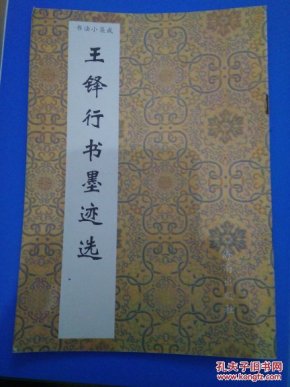 书法小集成
王铎行书墨迹选
孔夫子旧书网